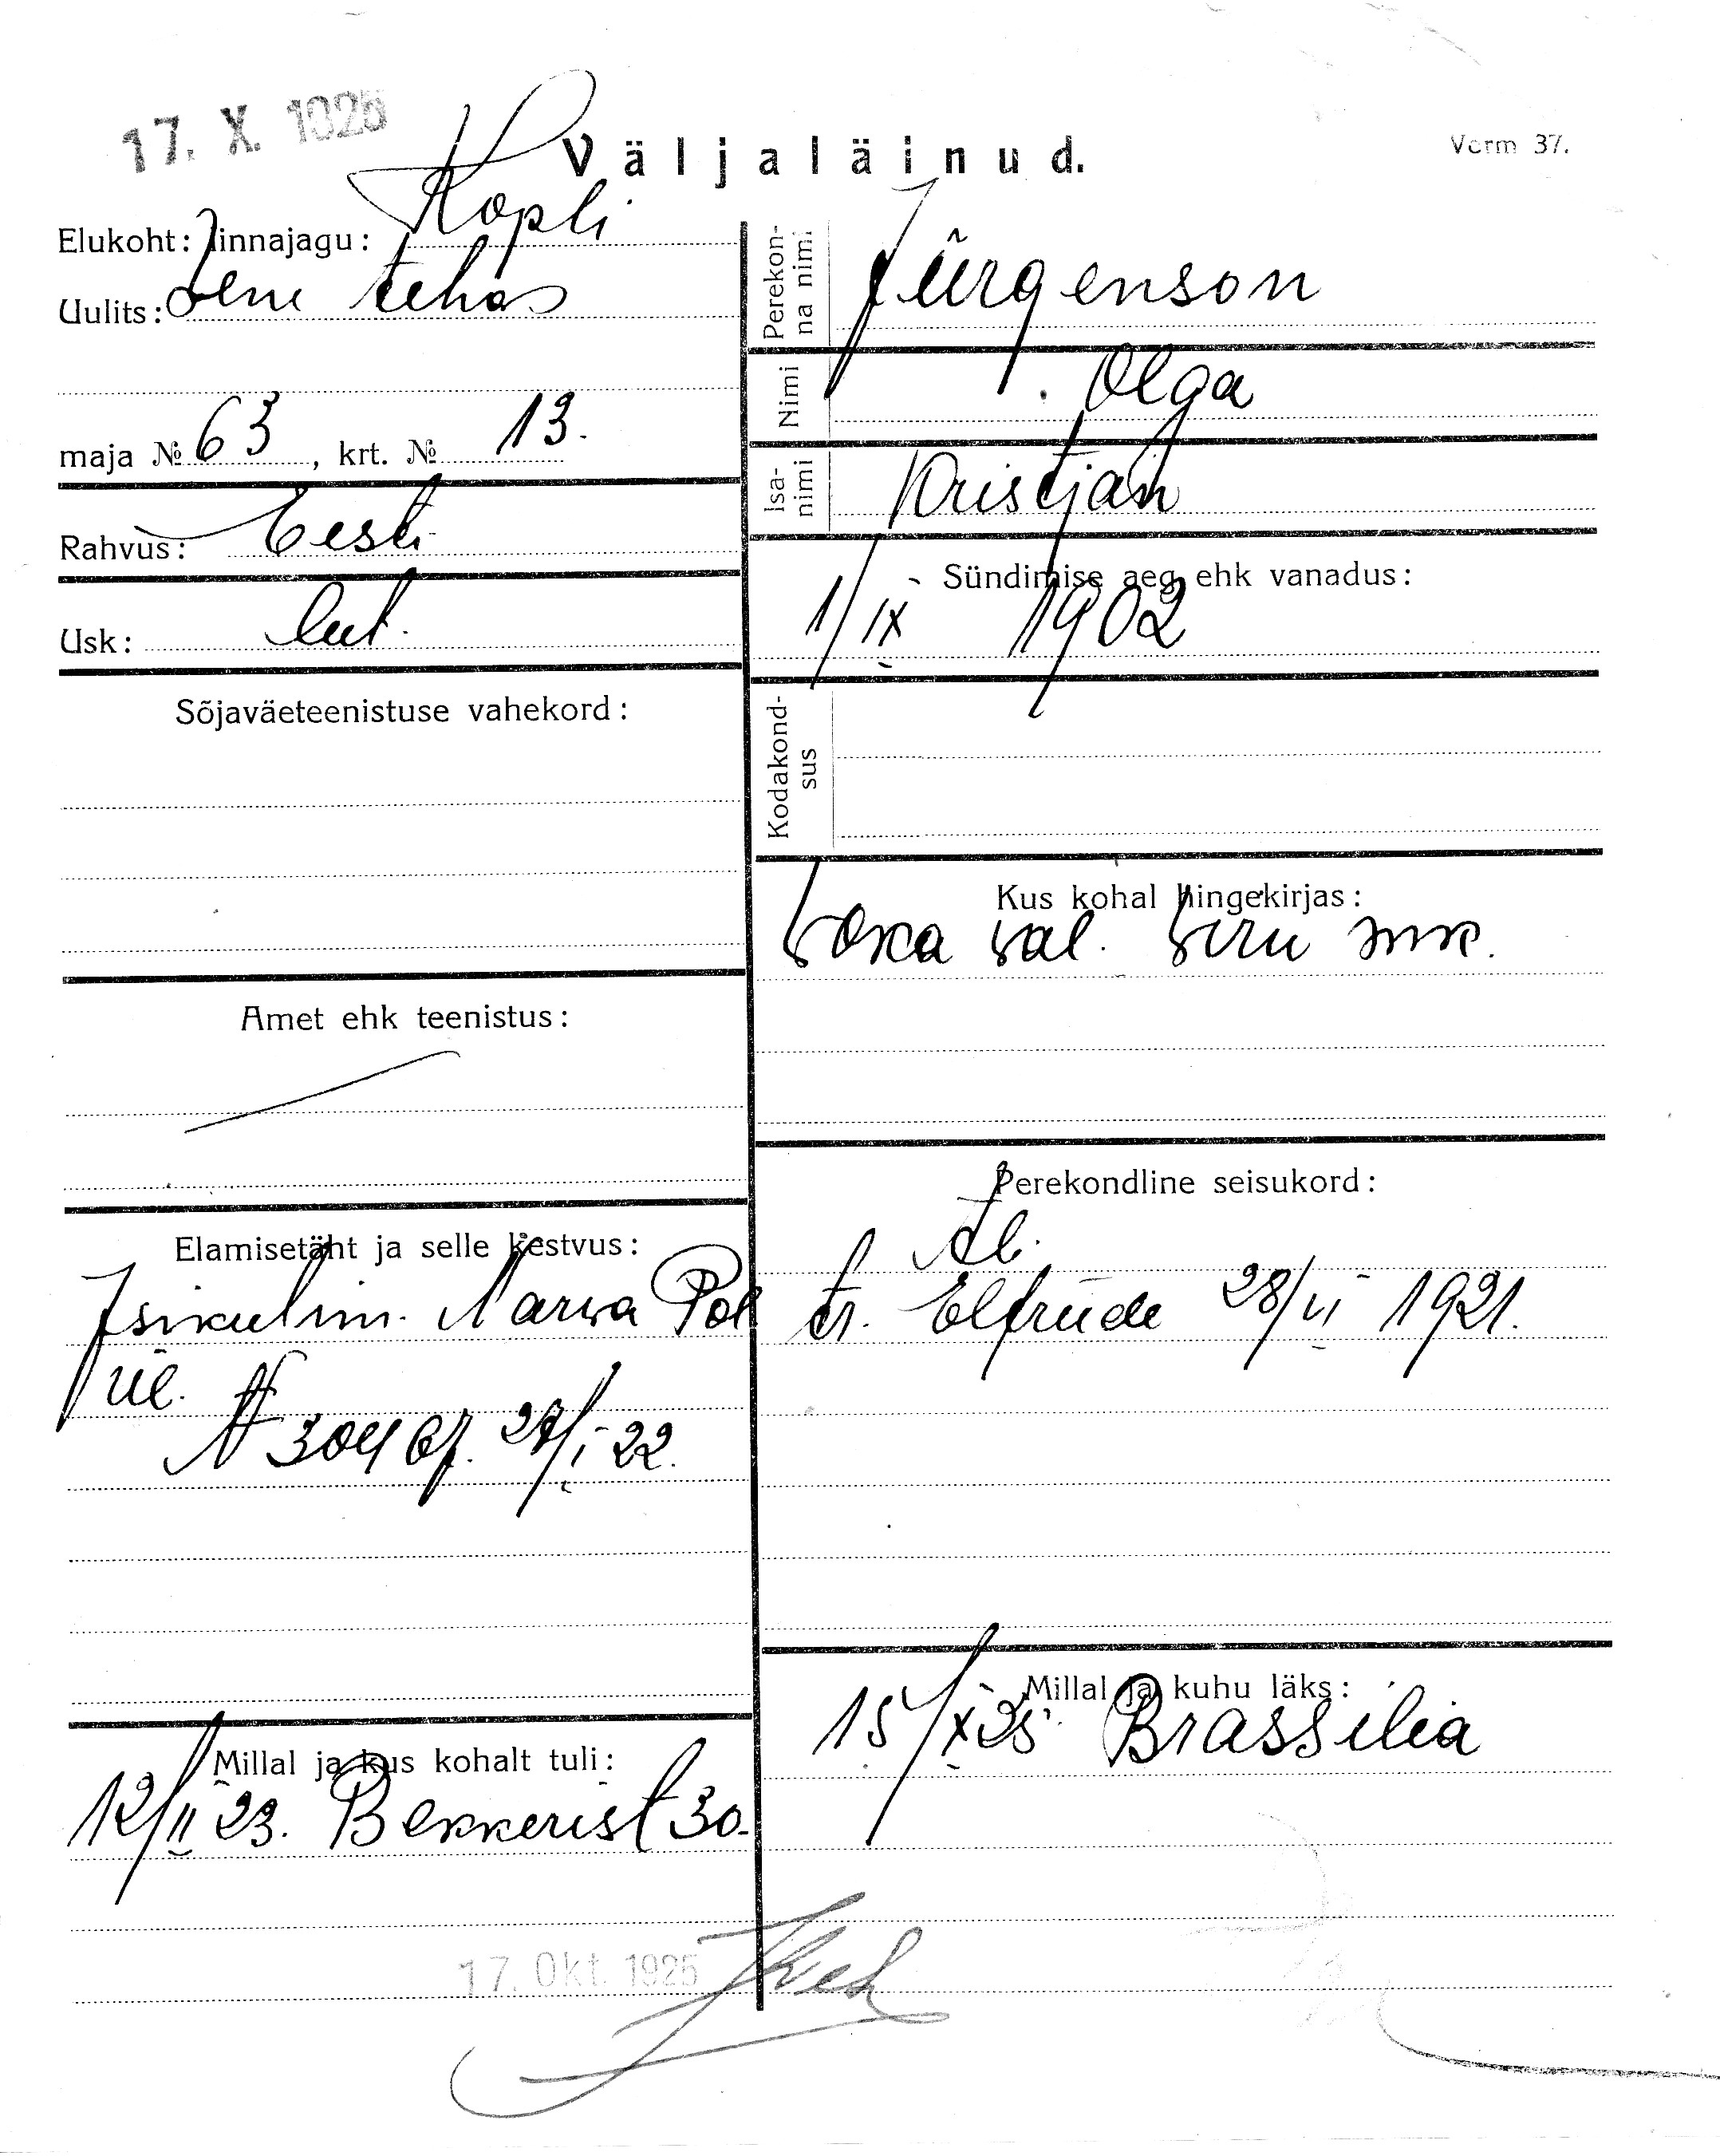 17. X. 1925
Väljaläinud.
Vorm 37.
Elukoht: linnajagu: Kopli
Uulits: Vene tehas
maja № 63, krt. № 13.
Rahvus: Eesti
Usk: lut.
Sõjaväeteenistuse vahekord:
Amet ehk teenistus:
Elamisetäht ja selle kestvus:
Isikutun. Narva Pol
N 30467. 27/I 22.
Millal ja kus kohalt tuli:
12/II 23. Bekkerist 30.
17. Okt. 1925
Perekonna nimi Jürgenson
Nimi Olga
Isanimi Kristjan
Sündimise aeg ehk vanadus:
1/IX 1902
Kodakondsus
Kus kohal hingekirjas:
Voka val. Viru mk.
Perekondline seisukord:
Ab.
tr. Elfriide 28/VI 1921.
Millal ja kuhu läks:
15/X 25. Brassilia